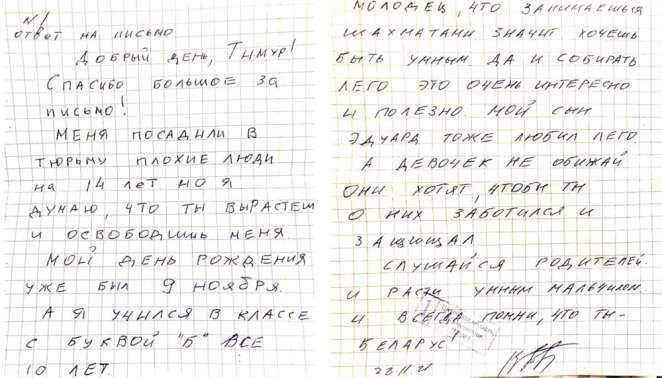 N 1
ОТВЕТ НА ПИСЬМО.
ДОБРЫЙ ДЕНЬ, ТИМУР!
СПАСИБО БОЛЬШОЕ ЗА
ПИСЬМО!
МЕНЯ ПОСАДИЛИ В
ТЮРЬМУ ПЛОХИЕ ЛЮДИ
НА 14 ЛЕТ НО Я
ДУМАЮ, ЧТО ТЫ ВЫРАСТЕШ
И ОСВОБОДИШЬ МЕНЯ
МОЙ ДЕНЬ РОЖДЕНИЯ
УЖЕ БЫЛ 9 НОЯБРЯ.
А Я УЧИЛСЯ В КЛАССЕ
С БУКВОЙ "Б" ВСЕ
10 ЛЕТ.
МОЛОДЕЦ, ЧТО ЗАНИМАЕШЬСЯ
ШАХМАТАМИ ЗНАЧИТ ХОЧЕШЬ
БЫТЬ УМНЫМ ДА И СОБИРАТЬ
ЛЕГО ЭТО ОЧЕНЬ ИНТЕРЕСНО
И ПОЛЕЗНО. МОЙ СЫН
ЭДУАРД ТОЖЕ ЛЮБИЛ ЛЕГО.
А ДЕВОЧЕК НЕ ОБИЖАЙ
ОНИ ХОТЯТ, ЧТОБЫ ТЫ
О НИХ ЗАБОТИЛСЯ И
ЗАЩИЩАЛ
СЛУШАЙСЯ РОДИТЕЛЕЙ.
И РАСТИ УМНЫМ МАЛЬЧИКОМ.
И ВСЕГДА ПОМНИ, ЧТО ТЫ-
БЕЛАРУС!